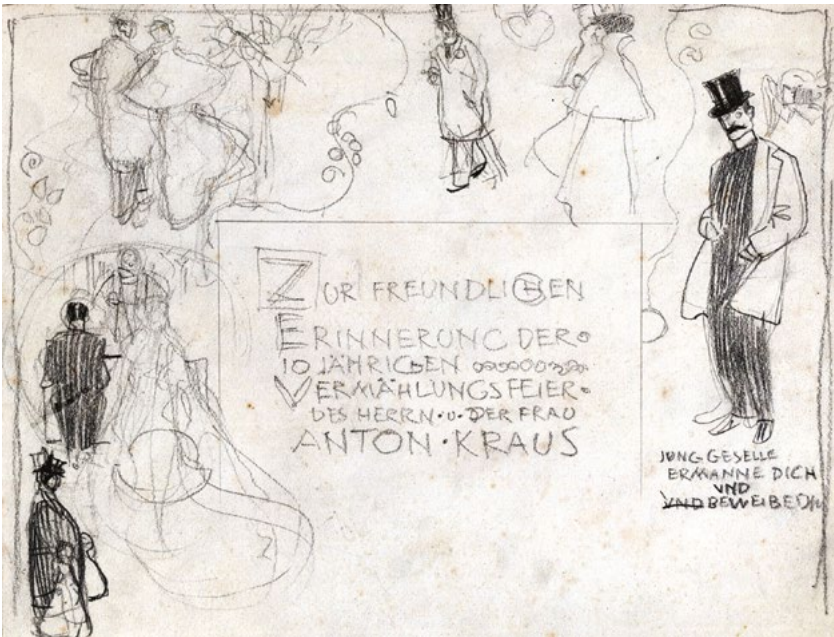 ZUR FREUNDLICHEN
ERINNERUNG DER
10 JÄHRIGEN
VERMÄHLUNGSFEIER
DES HERRN·U·DER FRAU
ANTON·KRAUS
JUNGGESELLE
ERMANNE DICH
VND
VND BEWEIBE DICH